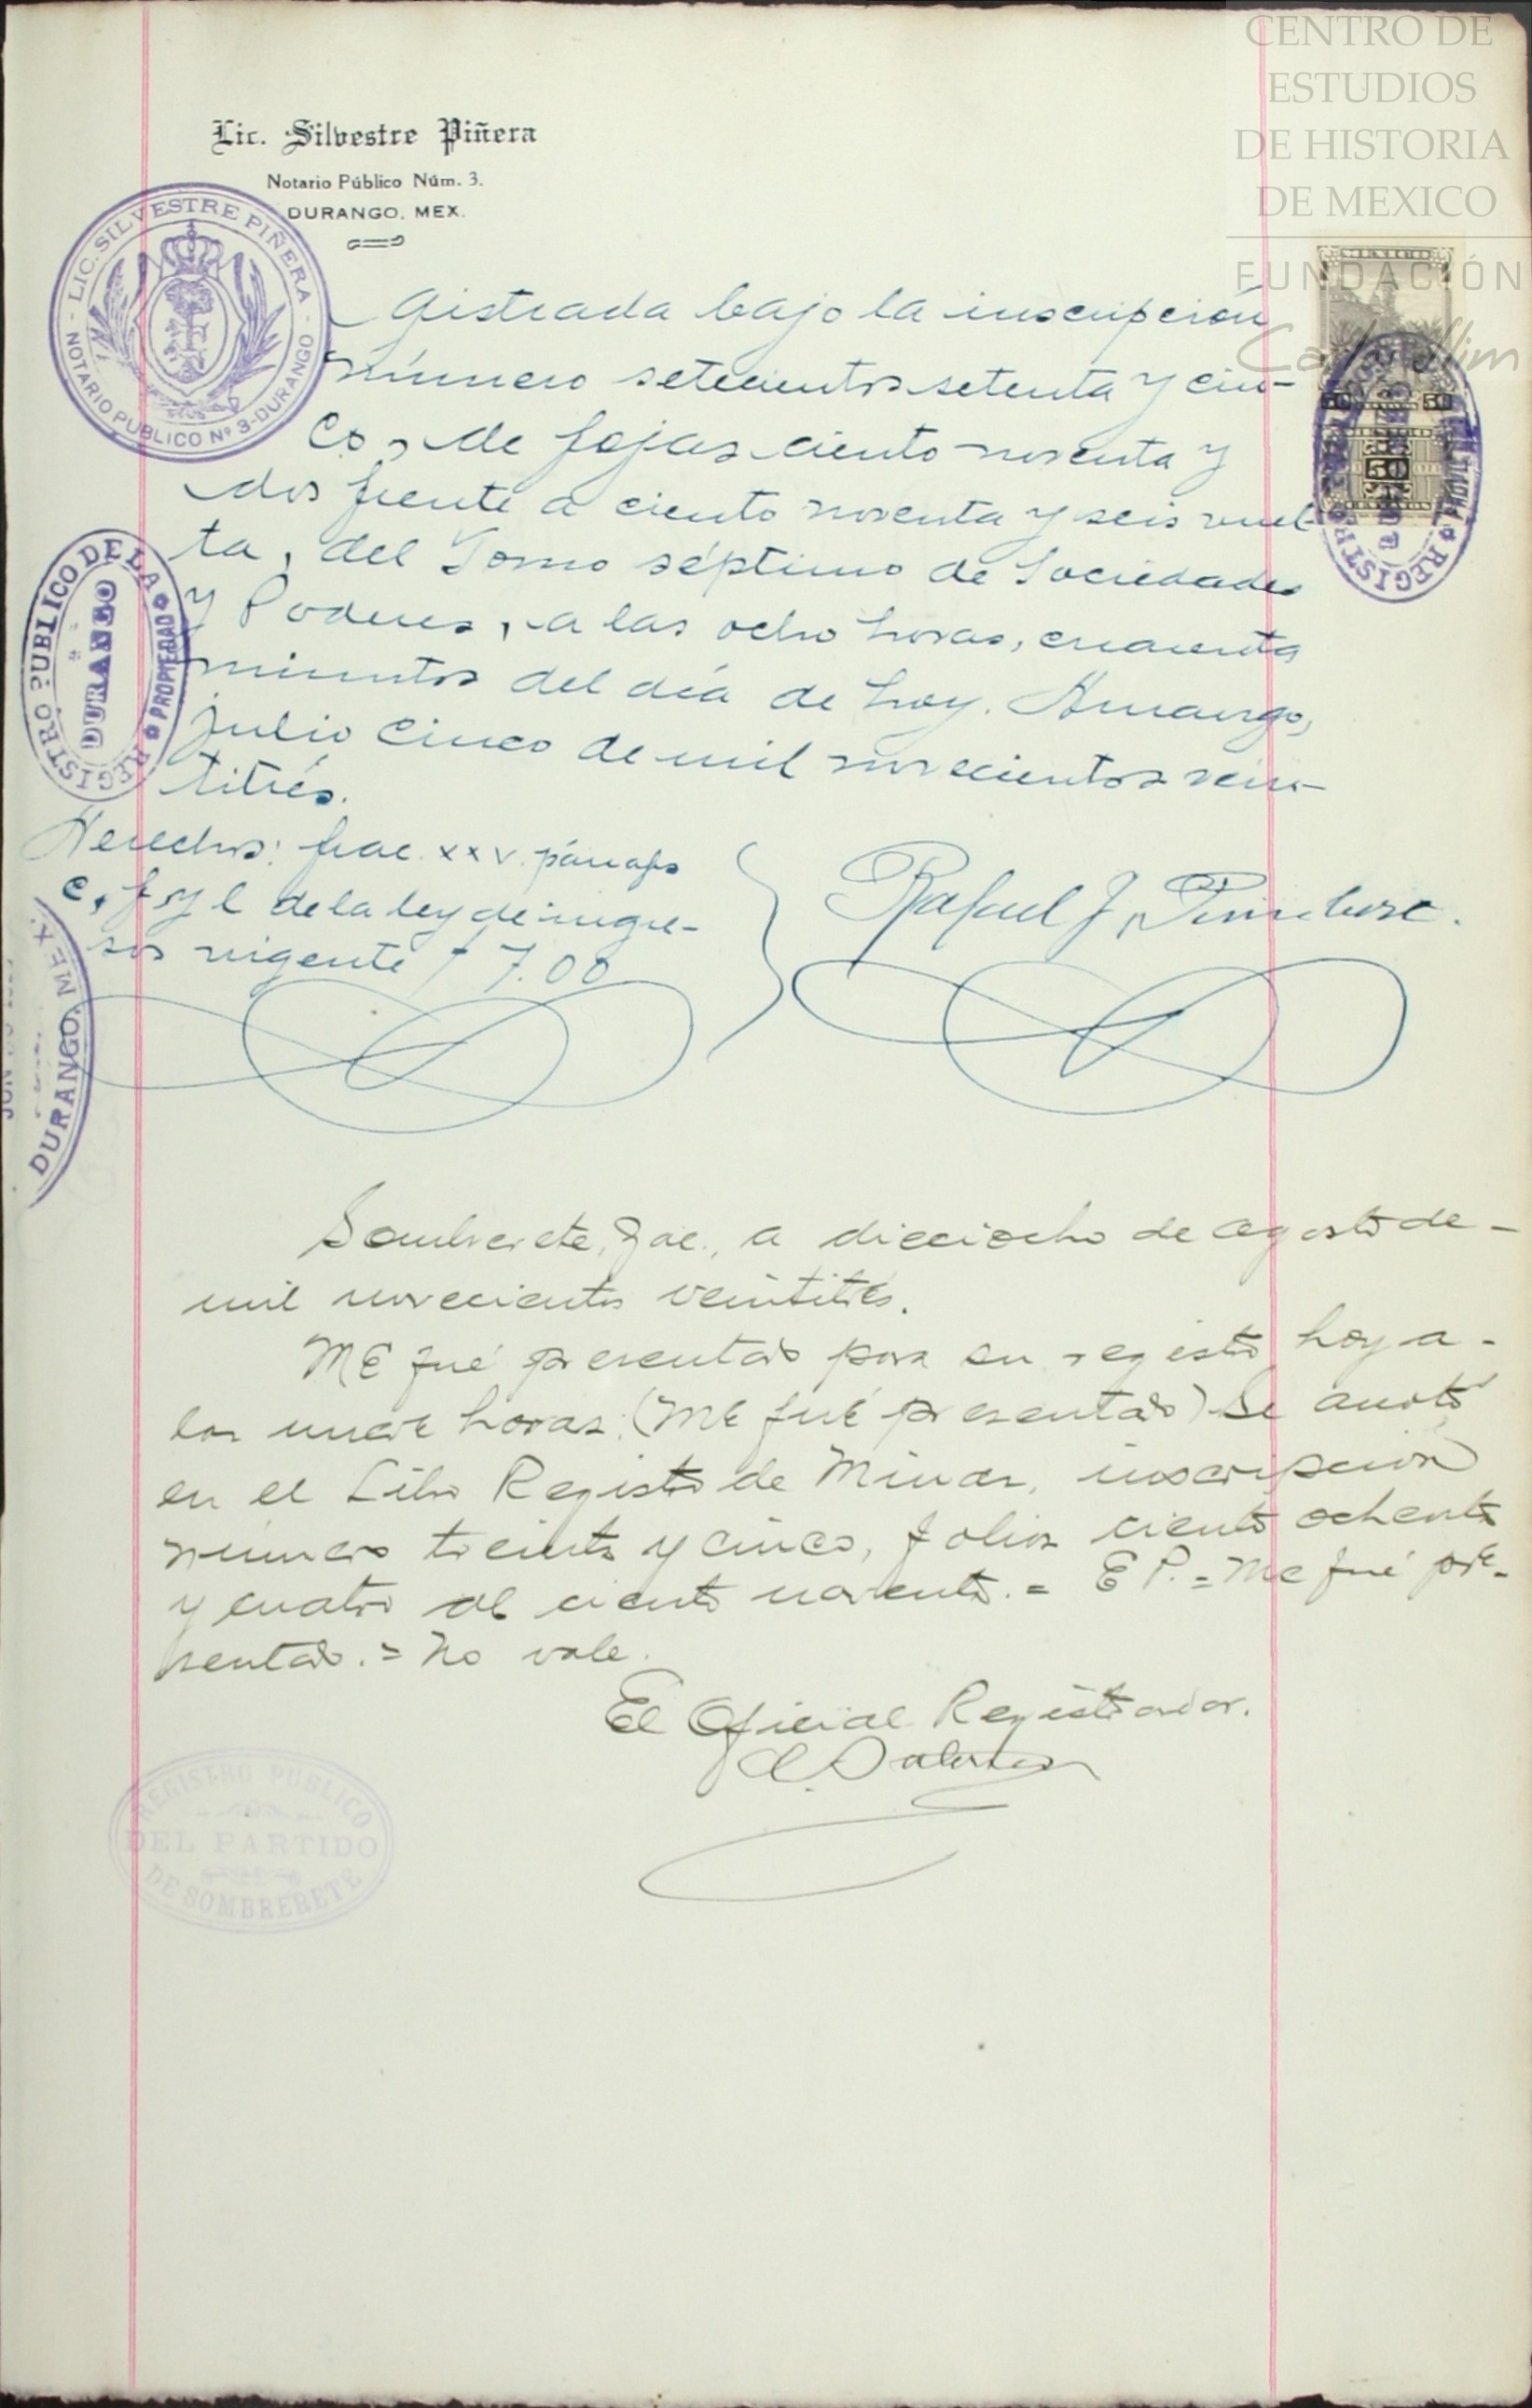 CENTRO DE
ESTUDIOS
DE HISTORIA
DE MEXICO
FUNDACIÓN
Carlos Slim
Lic. Silvestre Piñera
Notario Público Núm. 3.
DURANGO, MEX.
LIC. SILVESTRE PIÑERA
NOTARIO PUBLICO Nº 3-DURANGO
gistrada bajo la inscripción
número setecientos setenta y cin-
co, de fojas ciento noventa y
dos frente a ciento noventa y seis vuel-
ta, del Tomo séptimo de Sociedades
y Poderes, a las ocho horas, cuarenta
minutos del día de hoy. Durango,
julio cinco de mil novecientos vein-
titrés.
REGISTRO PUBLICO DE LA PROPIEDAD
DURANGO
50 50
50
REGISTRO
Derechos: frac. XXV. párrafos
e, f y l de la ley de ingre-
sos vigente $ 7.00
Rafael J.
DURANGO, MEX.
Sombrerete, Zac., a dieciocho de agosto de-
mil novecientos veintitrés.
ME fué presentado para su registro hoy a-
las nueve horas. (ME fué presentado) Se anotó
en el Libro Registro de Minas, inscripción
número treinta y cinco, folios ciento ochenta
y cuatro al ciento noventa. = E P. = Me fué pre-
sentado. = No vale.
El Oficial Registrador.
REGISTRO PUBLICO
DEL PARTIDO
DE SOMBRERETE